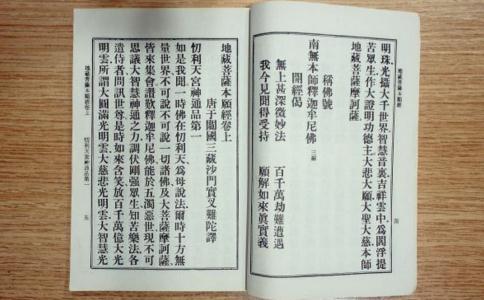 地藏菩薩本願經
明珠。光攝大千世界。智慧音裏。吉祥雲中。爲閻浮提
苦眾生。作大證明功德主。大悲大願。大聖大慈。本師
地藏菩薩摩訶薩。
稱佛號
南無本師釋迦牟尼佛 三稱
開經偈
無上甚深微妙法　百千萬劫難遭遇
我今見聞得受持　願解如來眞實義
地藏菩薩本願經卷上
唐于闐國三藏沙門實叉難陀譯
忉利天宮神通品第一
如是我聞。一時佛在忉利天。爲母說法。爾時十方無
量世界。不可說不可說一切諸佛。及大菩薩摩訶薩。
皆來集會。讚歎釋迦牟尼佛。能於五濁惡世。現不可
思議大智慧神通之力。調伏剛强眾生。知苦樂法。各
遣侍者。問訊世尊。是時如來含笑。放百千萬億大光
明雲。所謂大圓滿光明雲。大慈悲光明雲。大智慧光
地藏菩薩本願經卷上
忉利天宮神通品第一
五